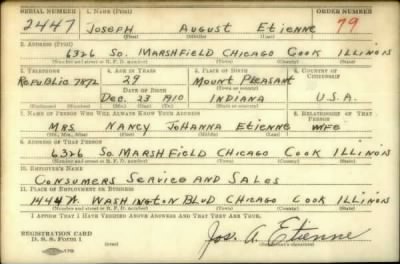 SERIAL NUMBER 1. NAME (Print) ORDER NUMBER
2447 JOSEPH AUGUST ETIENNE 79
(First) (Middle) (Last)
2. ADDRESS (Print)
6326 SO. MARSHFIELD CHICAGO COOK ILLINOIS
(Number and street or R. F. D. number) (Town) (County) (State)
3. TELEPHONE 4. AGE IN YEARS 5. PLACE OF BIRTH 6. COUNTRY OF CITIZENSHIP
REPUBLIC 7872 29 MOUNT PLEASANT
DATE OF BIRTH (Town or county)
DEC. 23 1910 INDIANA U.S.A.
(Exchange) (Number) (Mo.) (Day) (Yr.) (State or country)
7. NAME OF PERSON WHO WILL ALWAYS KNOW YOUR ADDRESS 8. RELATIONSHIP OF THAT PERSON
MRS NANCY JOHANNA ETIENNE WIFE
(Mr., Mrs., Miss) (First) (Middle) (Last)
9. ADDRESS OF THAT PERSON
6326 SO. MARSHFIELD CHICAGO COOK ILLINOIS
(Number and street or R. F. D. number) (Town) (County) (State)
10. EMPLOYER'S NAME
CONSUMERS SERVICE AND SALES
11. PLACE OF EMPLOYMENT OR BUSINESS
1444 W. WASHINGTON BLVD CHICAGO COOK ILLINOIS
(Number and street or R. F. D. number) (Town) (County) (State)
I AFFIRM THAT I HAVE VERIFIED ABOVE ANSWERS AND THAT THEY ARE TRUE.
REGISTRATION CARD
D. S. S. Form 1 Jos. A. Etienne
(over) (Registrant's signature)